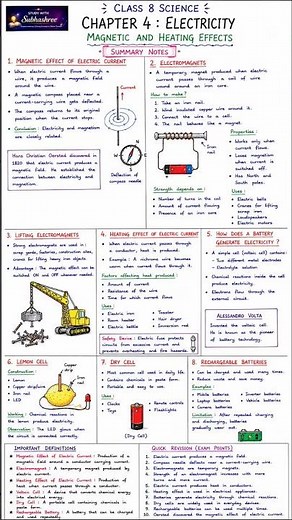 STUDY WITH
Subhashree
CLASS 8 SCIENCE
CHAPTER 4 : ELECTRICITY
MAGNETIC AND HEATING EFFECTS
SUMMARY NOTES
1. MAGNETIC EFFECT OF ELECTRIC CURRENT
When electric current flows through a wire, it produces a magnetic field around the wire.
A magnetic compass placed near a current-carrying wire gets deflected.
The compass returns to its original position when the current stops.
Conclusion : Electricity and magnetism are closely related.
Hans Christian Oersted discovered in 1820 that electric current produces a magnetic field. He established the connection between electricity and magnetism.
Current
N
S
Deflection of
compass needle
2. ELECTROMAGNETS
A temporary magnet produced when electric current passes through a coil of wire wound around an iron nail.
How to make?
1. Take an iron nail.
2. Wind insulated copper wire around it.
3. Connect the wire to a cell.
4. The nail behaves like a magnet.
Iron
nail
Properties :
Works only when current flows.
Loses magnetism when current is switched off.
Has North and South poles.
Strength depends on :
Number of turns in the coil
Amount of current flowing
Presence of an iron core
Uses :
Electric bells
Cranes for lifting scrap iron
Loudspeakers
Electric motors
3. LIFTING ELECTROMAGNETS
Strong electromagnets are used in : scrap yards, factories, construction sites, cranes for lifting heavy iron objects
Advantage : The magnetic effect can be switched ON and OFF whenever needed.
4. HEATING EFFECT OF ELECTRIC CURRENT
When electric current passes through a conductor, heat is produced.
Example : A nichrome wire becomes warm when current flows through it.
Factors affecting heat produced :
Amount of current
Resistance of the wire
Time for which current flows
Uses :
Electric iron
Room heater
Electric kettle
Toaster
Hair dryer
Immersion rod
Safety Device : Electric fuse protects circuits from excessive current and prevents overheating and fire hazards.
5. HOW DOES A BATTERY
GENERATE ELECTRICITY ?
A simple cell (voltaic cell) contains:
- Two different metal electrodes
- Electrolyte solution
Chemical reactions inside the cell produce electricity.
Electrons flow through the external circuit.
ALESSANDRO VOLTA
Invented the voltaic cell.
He is known as the pioneer of battery technology.
6. LEMON CELL
Construction :
Lemon
Copper strip/wire
Iron nail
LED
Copper
strip
Iron
nail
Working : Chemical reactions in the lemon produce electricity.
Observation : The LED glows when the circuit is connected correctly.
7. DRY CELL
Most common cell used in daily life.
Contains chemicals in paste form.
Portable and easy to use.
Uses :
Clocks
Toys
Remote controls
Flashlights
(Dry Cell)
8. RECHARGEABLE BATTERIES
Can be charged and used many times.
Reduce waste and save money.
Examples :
Mobile batteries
Laptop batteries
Camera batteries
Inverter batteries
Vehicle batteries
Limitation : After repeated charging and discharging, batteries gradually wear out.
IMPORTANT DEFINITIONS
Magnetic Effect of Electric Current : Production of a magnetic field around a conductor carrying current.
Electromagnet : A temporary magnet produced by electric current.
Heating Effect of Electric Current : Production of heat when current passes through a conductor.
Voltaic Cell : A device that converts chemical energy into electrical energy.
Dry Cell : A portable cell containing chemicals in paste form.
Rechargeable Battery : A battery that can be charged and used repeatedly.
QUICK REVISION (EXAM POINTS)
1. Electric current produces a magnetic field.
2. Compass needle deflects near a current-carrying wire.
3. Electromagnets are temporary magnets.
4. Strength of an electromagnet increases with more turns and more current.
5. Electric current produces heat in conductors.
6. Heating effect is used in electrical appliances.
7. Batteries generate electricity through chemical reactions.
8. Dry cells are widely used in everyday devices.
9. Rechargeable batteries can be used multiple times.
10. Oersted discovered the magnetic effect of electric current.